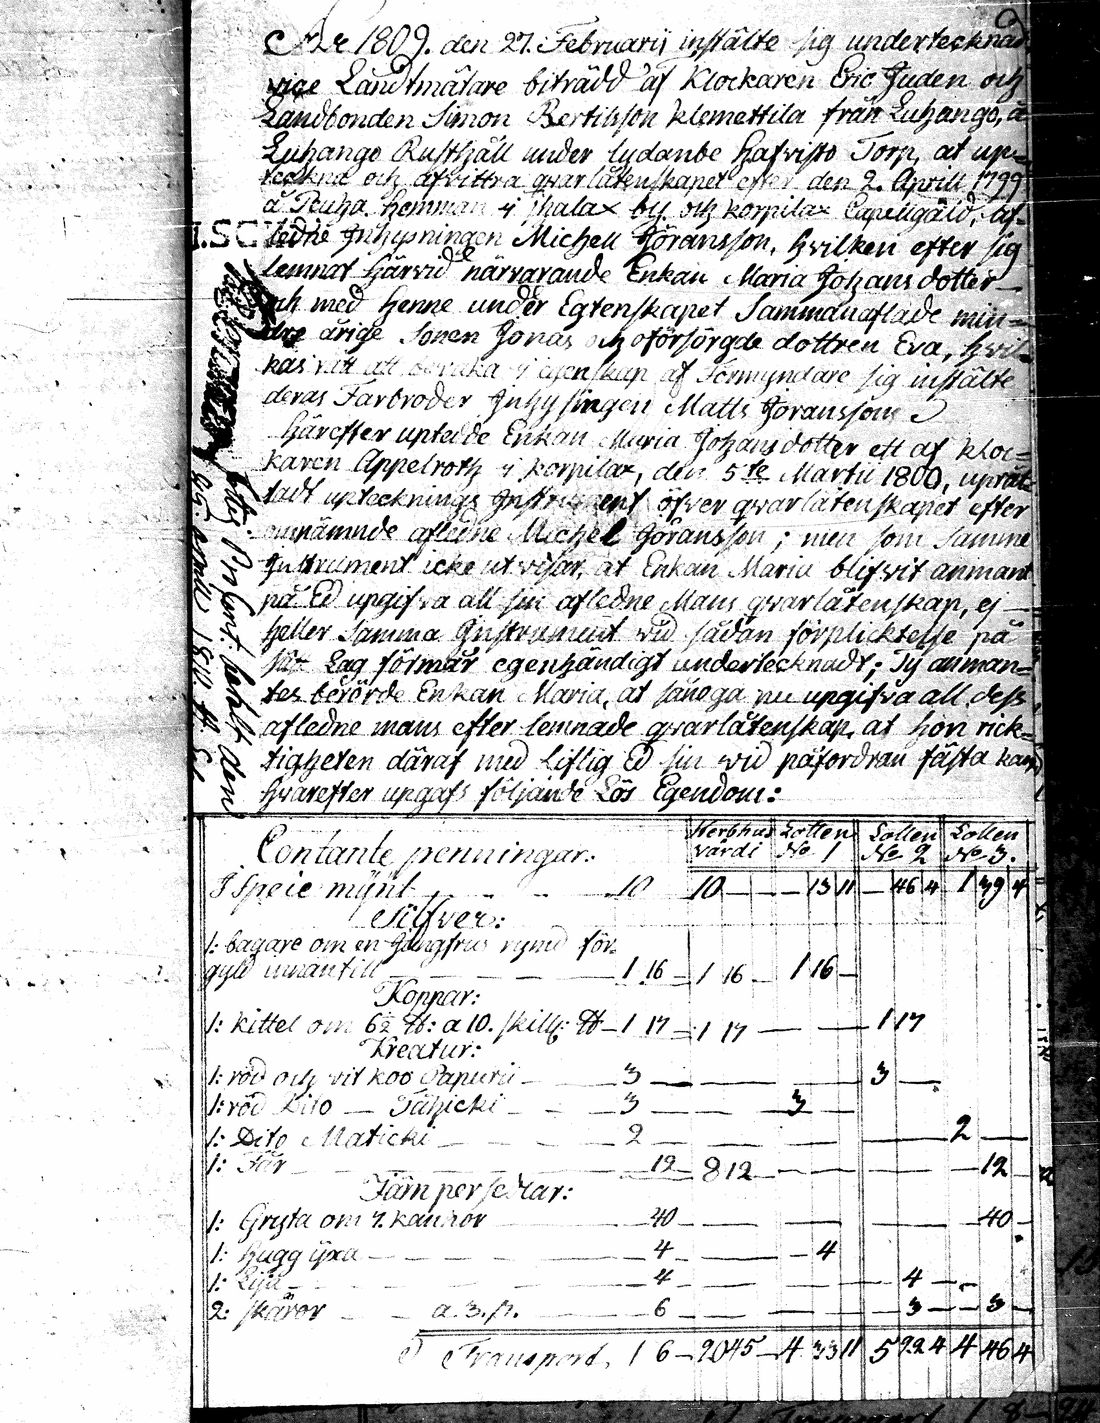 Åhr 1809. den 27. Februarij instälte sig undertecknad
vice Landtmätare biträdd af Klockaren Eric Juden och
Landbonden Simon Bertilsson Klemettila från Luhango, å
Luhango Rusthåll under lydande Hafvisto Torp, at up=
teckna och afvittra qvarlåtenskapet efter den 2. Aprill 1799
å Ruha Hemman i Jhalax by och Korpilax Capellgäld, af=
ledne Inhysningen Michell Göransson, hvilken efter sig
lemnat härvid närvarande Enkan Maria Johansdotter
och med henne under Egtenskapet Sammanaflade min=
dre årige Sonen Jonas och oförsörgde dottren Eva, hvil=
kas rätt att bevaka i egenskap af Förmyndare sig instälte
deras Farbroder Inhysingen Matts Göransson
Härefter uptedde Enkan Maria Johansdotter ett af kloc=
karen Appelroth i Korpilax, den 5te Martii 1800, uprät=
tadt uptecknings Instrument öfver qvarlåtenskapet efter
omnämnde afledne Michel Göransson; men som Samme
Instrument icke utvisar, at Enkan Maria blifvit anmant
på Ed upgifva all sin afledne Mans qvarlåtenskap, ej
heller Samma Instrument vid sådan förplicktelse på
sätt Lag förmår egenhändigt undertecknadt; Ty anman=
tes berörde Enkan Maria, at sanoga nu upgifva all dess
afledne mans efter lemnade qvarlåtenskap, at hon rick=
tigheten däraf med Liflig Ed sin vid påfordran fästa kan,
hvarefter upgafs följande Lös Egendom:
Sterbhus Lotten Lotten Lotten
värdi No 1 No 2 No 3.
Contante penningar.
I Speie mynt 10 10 — 13 11 — 46 4 1 39 4
Silfver:
1: bagare om en Jungfrus rymd för=
gyld innantill 1 16 1 16 1 16
Koppar:
1: kittel om 6½ ℔: a 10. skill: ℔ 1 17 1 17 1 17
Kreatur:
1: röd och vit koo Papurii 3 3
1: röd Dito Tähicki 3 3
1: Dito Maticki 2 2
1: Får 12 8 12 12
Järn persedlar:
1: Gryta om 7. kannor 40 40
1: hugg yxa 4 4
1: Lija 4 4
2: skäror a. 3. s. 6 3 3
Transport, 1 6 20 45 4 33 11 5 22 4 4 46 4